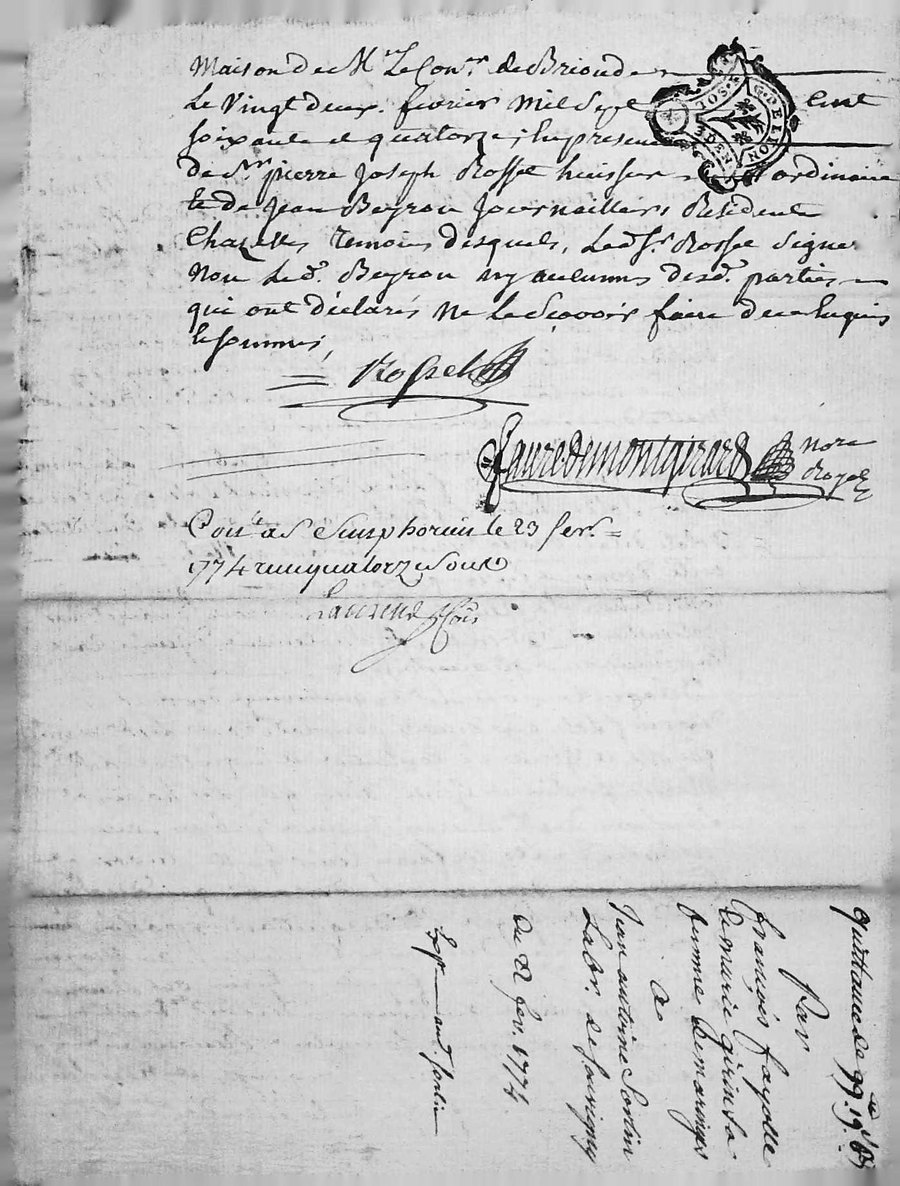 Maison de Mr. Le Coner. de Brioude
Le Vingt deux fevrier Mil Sept Cent
soixante et quatorze, En presence
de Sr. pierre Joseph Rosset huissier ordinaire
et de Jean Beyron Journaillier, Residents
Chazelles Temoins desquels, Led. Sr. Rosset Signe
Non Led. Beyron ny aucunes desd. parties
qui ont déclarés ne le Scavoir faire de ce Enquis
G. DE LION
SOL
Rosset
fauredemontgirard
Nore
Royal
Con.le a St Simphorien le 23 fevr.
1774 reçu quatorze sous
quittance de 99tt 19s
Par
françois fayolle
et marie guerin sa
femme de maringes
a
Jean antoine Sordin
Labr. de
du 22 fev. 1774